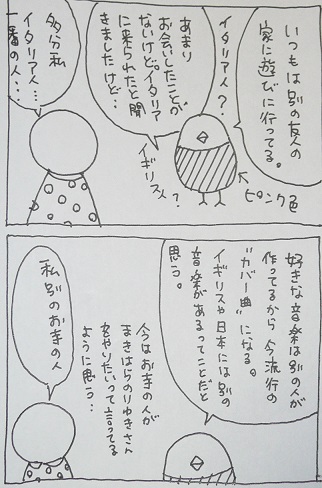 いつもは別の友人の
家に遊びに行ってる。
イタリア人?
あまり
お会いしたことが
ないけど。イタリア
に来られたと聞
きましたけど…
イギリス人?
ピンク色
多分私
イタリア人…
一番の人…
好きな音楽は別の人が
作ってるから今流行の
“カバー曲”になる。
イギリスや日本には別の
音楽があるってことだと
思う。
今はお寺の人が
まきはらのりゆきさん
をやりたいって言ってる
ように思う…
私別のお寺の人